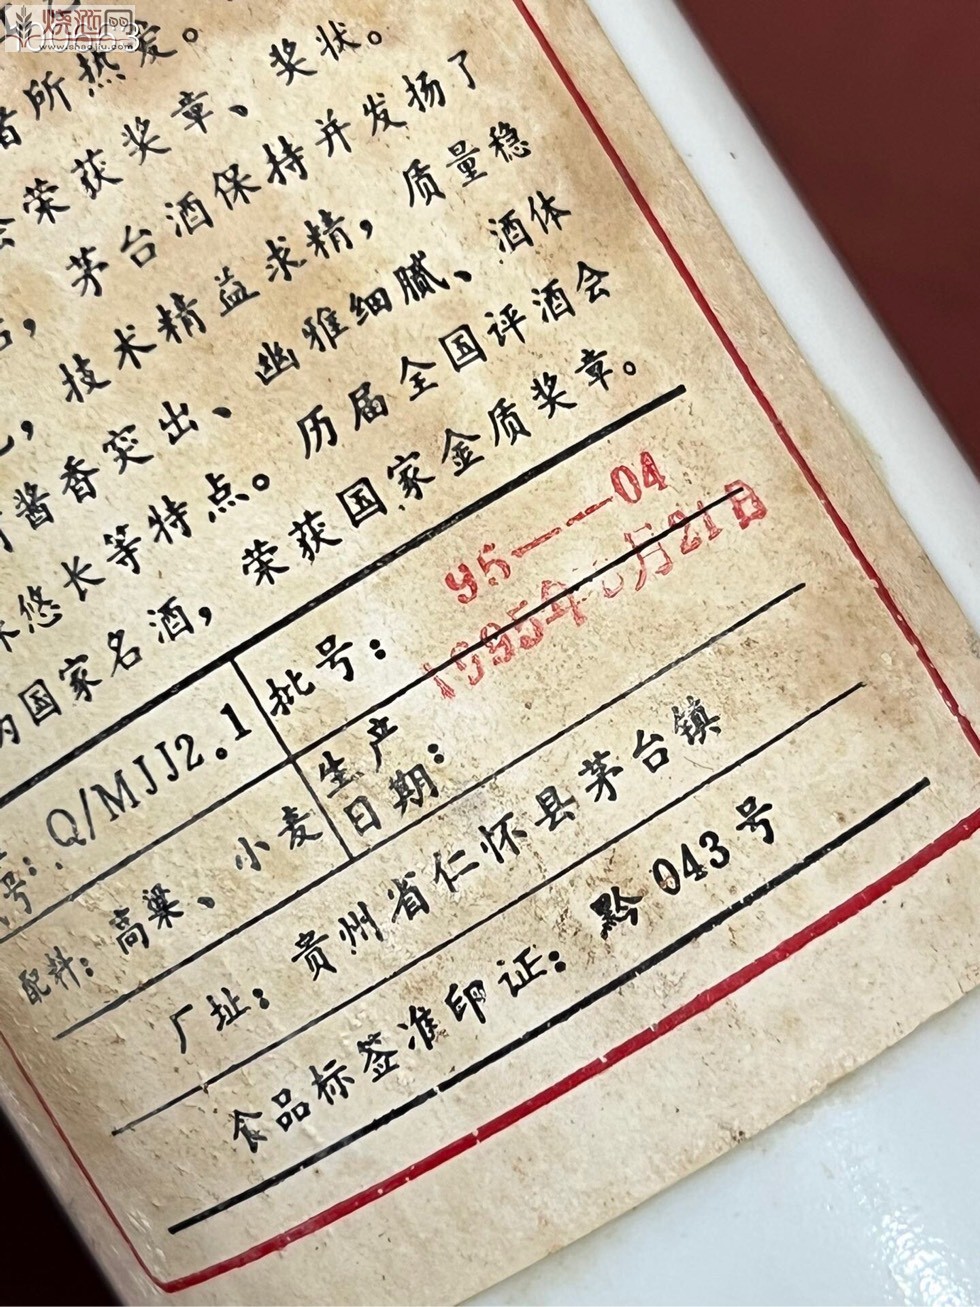 烧酒网
www.shaojiu.com
者所热爱。
会荣获奖章、奖状。
茅台酒保持并发扬了
,技术精益求精,质量稳
酱香突出、幽雅细腻、酒体
悠长等特点。历届全国评酒会
为国家名酒,荣获国家金质奖章。
号:Q/MJJ2.1
批号:95——04
配料:高粱、小麦
生产日期:1995年 月21日
厂址:贵州省仁怀县茅台镇
食品标签准印证:黔043号